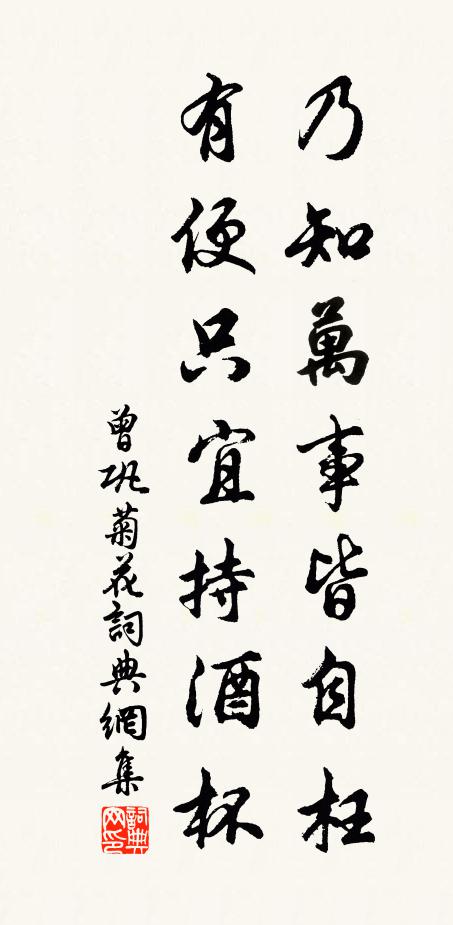 乃知萬事皆自枉
有便只宜持酒杯
曾巩菊花詞典網集
詞典网印